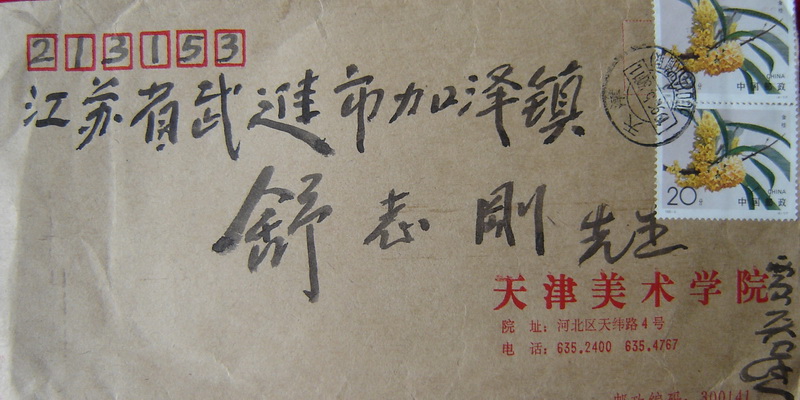 213153
江苏省武进市加泽镇
舒志刚 先生
天津美术学院
院 址: 河北区天纬路4号
电 话: 635.2400 635.4767
邮政编码: 300141
20分
CHINA
中国邮政
CHINA
中国邮政
天津